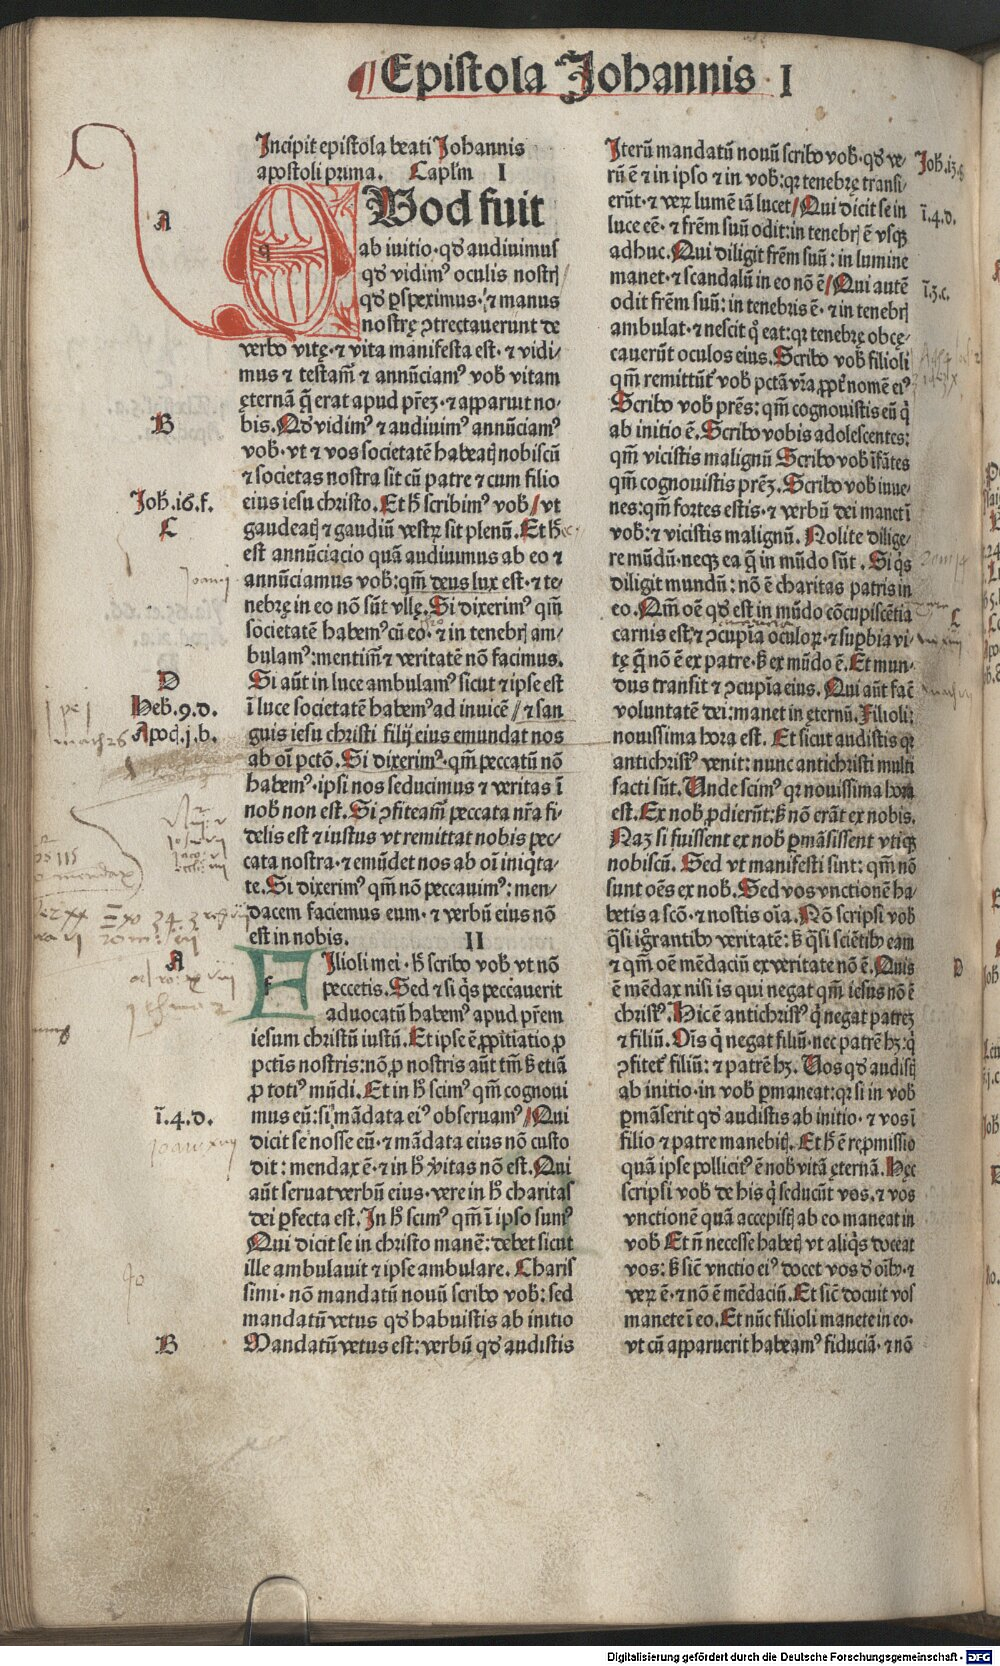 ¶Epistola Johannis I
Incipit epistola beati Johannis
apostoli prima. Caplm I
QVod fuit
ab initio· qd audiuimus
qd vidimꝰ oculis nostrꝭ
qd ꝑspeximus· ⁊ manus
nostrę ꝯtrectauerunt de
verbo vitę· ⁊ vita manifesta est· ⁊ vidi/
mus ⁊ testam̃ ⁊ annūciamꝰ vob̾ vitam
ęternā q̃ erat apud pr̃eꝫ· ⁊ apparuit no/
bis. Qd vidimꝰ ⁊ audiuimꝰ annūciamꝰ
vob̾· vt ⁊ vos societatē habeatꝭ nobiscū
⁊ societas nostra sit cū patre ⁊ cum filio
eius iesu christo. Et h̾ scribimꝰ vob̾ / vt
gaudeatꝭ ⁊ gaudiū vestrꝝ sit plenū. Et h̾ ę
est annūciacio quā audiuimus ab eo ⁊
annūciamus vob̾: qm̃ deus lux est· ⁊ te/
nebrę in eo nō sūt vllę. Si dixerimꝰ qm̃
societatē habemꝰ cū eo· ⁊ in tenebrꝭ am/
bulamꝰ: mentim̃ ⁊ veritatē nō facimus.
Si aūt in luce ambulamꝰ sicut ⁊ ipse est
ī luce societatē habemꝰ ad inuicē / ⁊ san
guis iesu christi filij eius emundat nos
ab oī pctō. Si dixerimꝰ· qm̃ peccatū nō
habemꝰ· ipsi nos seducimus ⁊ veritas ī
nob̾ non est. Si ꝯfiteam̃ peccata nr̃a fi/
delis est ⁊ iustus vt remittat nobis pec/
cata nostra· ⁊ emūdet nos ab oī iniq̇ta/
te. Si dixerimꝰ qm̃ nō peccauimꝰ: men/
dacem faciemus eum· ⁊ verbū eius nō
est in nobis. II
FIlioli mei· h̾ scribo vob̾ vt nō
peccetis. Sed ⁊ si q̇s peccauerit
aduocatū habemꝰ apud pr̃em
iesum christū iustū. Et ipse ē ꝓpitiatio ꝓ
pctīs nostris: nō ꝓ nostris aūt tm̃ ß etiā
ꝓ totiꝰ mūdi. Et in h̾ scimꝰ qm̃ cognoui
mus eū: si mādata eiꝰ obseruamꝰ / Qui
dicit se nosse eū· ⁊ mādata eius nō custo
dit: mendax ē· ⁊ in h̾ v̾itas nō est. Qui
aūt seruat verbū eius· vere in h̾ charitas
dei ꝑfecta est. In h̾ scimꝰ qm̃ ī ipso sumꝰ
Qui dicit se in christo manē: debet sicut
ille ambulauit ⁊ ipse ambulare. Charis
simi· nō mandatū nouū scribo vob̾: sed
mandatū vetus qd habuistis ab initio
Mandatū vetus est: verbū qd audistis
A
B
Joh̾. i6. f.
C
D
Heb̾. 9. d.
Apoc̄. j. b.
A
ī. 4. d.
B
Iterū mandatū nouū scribo vob̾· qd ve/
rū ē ⁊ in ipso ⁊ in vob̾: qꝛ tenebrę transi/
erūt· ⁊ verꝝ lumē iā lucet / Qui dicit se in
luce eē· ⁊ fr̃em suū odit: in tenebrꝭ ē vsqꝫ
adhuc. Qui diligit fr̃em suū: in lumine
manet· ⁊ scandalū in eo nō ē / Qui autē
odit fr̃em suū: in tenebris ē· ⁊ in tenebrꝭ
ambulat· ⁊ nescit q̇ eat: qꝛ tenebrę obcę/
cauerūt oculos eius. Scribo vob̾ filioli
qm̃ remittūt̃ vob̾ pctā vr̃a ꝓpt̃ nomē eiꝰ
Scribo vob̾ pr̃es: qm̃ cognouistis eū q̇
ab initio ē. Scribo vobis adolescentes:
qm̃ vicistis malignū Scribo vob̾ īfātes
qm̃ cognouistis pr̃eꝫ. Scribo vob̾ iuue/
nes: qm̃ fortes estis· ⁊ verbū dei manet ī
vob̾: ⁊ vicistis malignū. Nolite dilige/
re mūdū· neqꝫ ea q̃ in mūdo sūt. Si q̇s
diligit mundū: nō ē charitas patris in
eo. Qm̃ oē qd est in mūdo ꝯcupiscētia
carnis est· ⁊ ꝯcupīa oculoꝝ· ⁊ suꝑbia vi/
tę q̃ nō ē ex patre· ß ex mūdo ē. Et mun/
dus transit ⁊ ꝯcupīa eius. Qui aūt facē
voluntatē dei: manet in ęternū. Filioli:
nouissima hora est. Et sicut audistis qꝛ
antichristꝰ venit: nunc antichristi multi
facti sūt. Unde scimꝰ qꝛ nouissima hora
est. Ex nob̾ ꝓdierūt: ß nō erāt ex nobis.
Naꝫ si fuissent ex nob̾ ꝑmāsissent vtiqꝫ
nobiscū. Sed vt manifesti sint: qm̃ nō
sunt oēs ex nob̾. Sed vos vnctionē ha/
betis a scō· ⁊ nostis oīa. Nō scripsi vob̾
q̃si ig̃rantibꝰ veritatē: ß q̃si sciētibꝰ eam
⁊ qm̃ oē mēdaciū ex veritate nō ē. Quis
ē mēdax nisi is qui negat qm̃ iesus nō ē
christꝰ. Hic ē antichristꝰ q̇ negat patreꝫ
⁊ filiū. Oīs q̇ negat filiū· nec patrē hꝫ: q̇
ꝯfitet̃ filiū: ⁊ patrē hꝫ. Uos qd audistꝭ
ab initio· in vob̾ ꝑmaneat: qꝛ si in vob̾
ꝑmāserit qd audistis ab initio· ⁊ vos ī
filio ⁊ patre manebitꝭ. Et h̾ ē reꝓmissio
quā ipse pollicitꝰ ē nob̾ vitā ęternā. Hęc
scripsi vob̾ de his q̇ seducūt vos. ⁊ vos
vnctionē quā accepistꝭ ab eo maneat in
vob̾ Et ñ necesse habetꝭ vt aliq̇s doceat
vos: ß sic̄ vnctio eiꝰ docet vos d̾ oībꝰ· ⁊
verꝝ ē· ⁊ nō ē mēdaciū. Et sic̄ docuit vos
manete ī eo. Et nūc filioli manete in eo·
vt cū apparuerit habeamꝰ fiduciā· ⁊ nō
Joh̾. i3. g
ī. 4. d.
ī. 3. c.
C
D
Digitalisierung gefördert durch die Deutsche Forschungsgemeinschaft · DFG